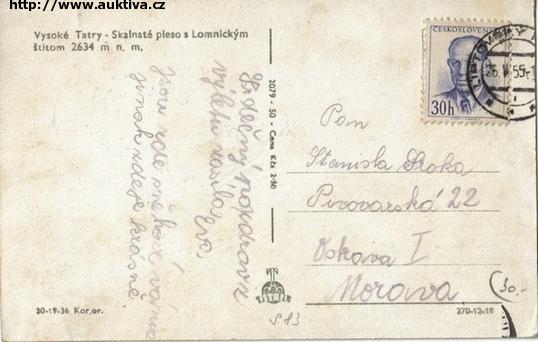 http://www.auktiva.cz
Vysoké Tatry - Skalnaté pleso s Lomnickým
štítom 2634 m n. m.
Srdečný pozdrav z
výletu zasílá
Eva.
Jsou zde sněhové
jinak zdejě krásně.
2079 - 50 - Cena Kčs 2·50
TATRAN
ČESKOSLOVENSKO
30h
LIPTOVSKÝ
26.V.55
Pan
Stanisla Sroka
Pivovarská 22
Ostrava I
Morava
20-19-36 Kor.or.
270-12-16
S 83
30.-